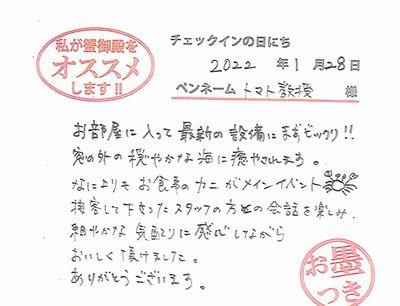 私が蟹御殿を
オススメ
します!!
チェックインの日にち
2022 年 1月 28日
ペンネーム トマト教授 様
お部屋に入って最新の設備にまずビックリ!!
窓の外の穏やかな海に癒やされます。
なによりもお食事のカニがメインイベント
接客して下さったスタッフの方との会話を楽しみ、
細やかな気配りに感心しながら
おいしく頂けました。
ありがとうございます。
お墨
つき